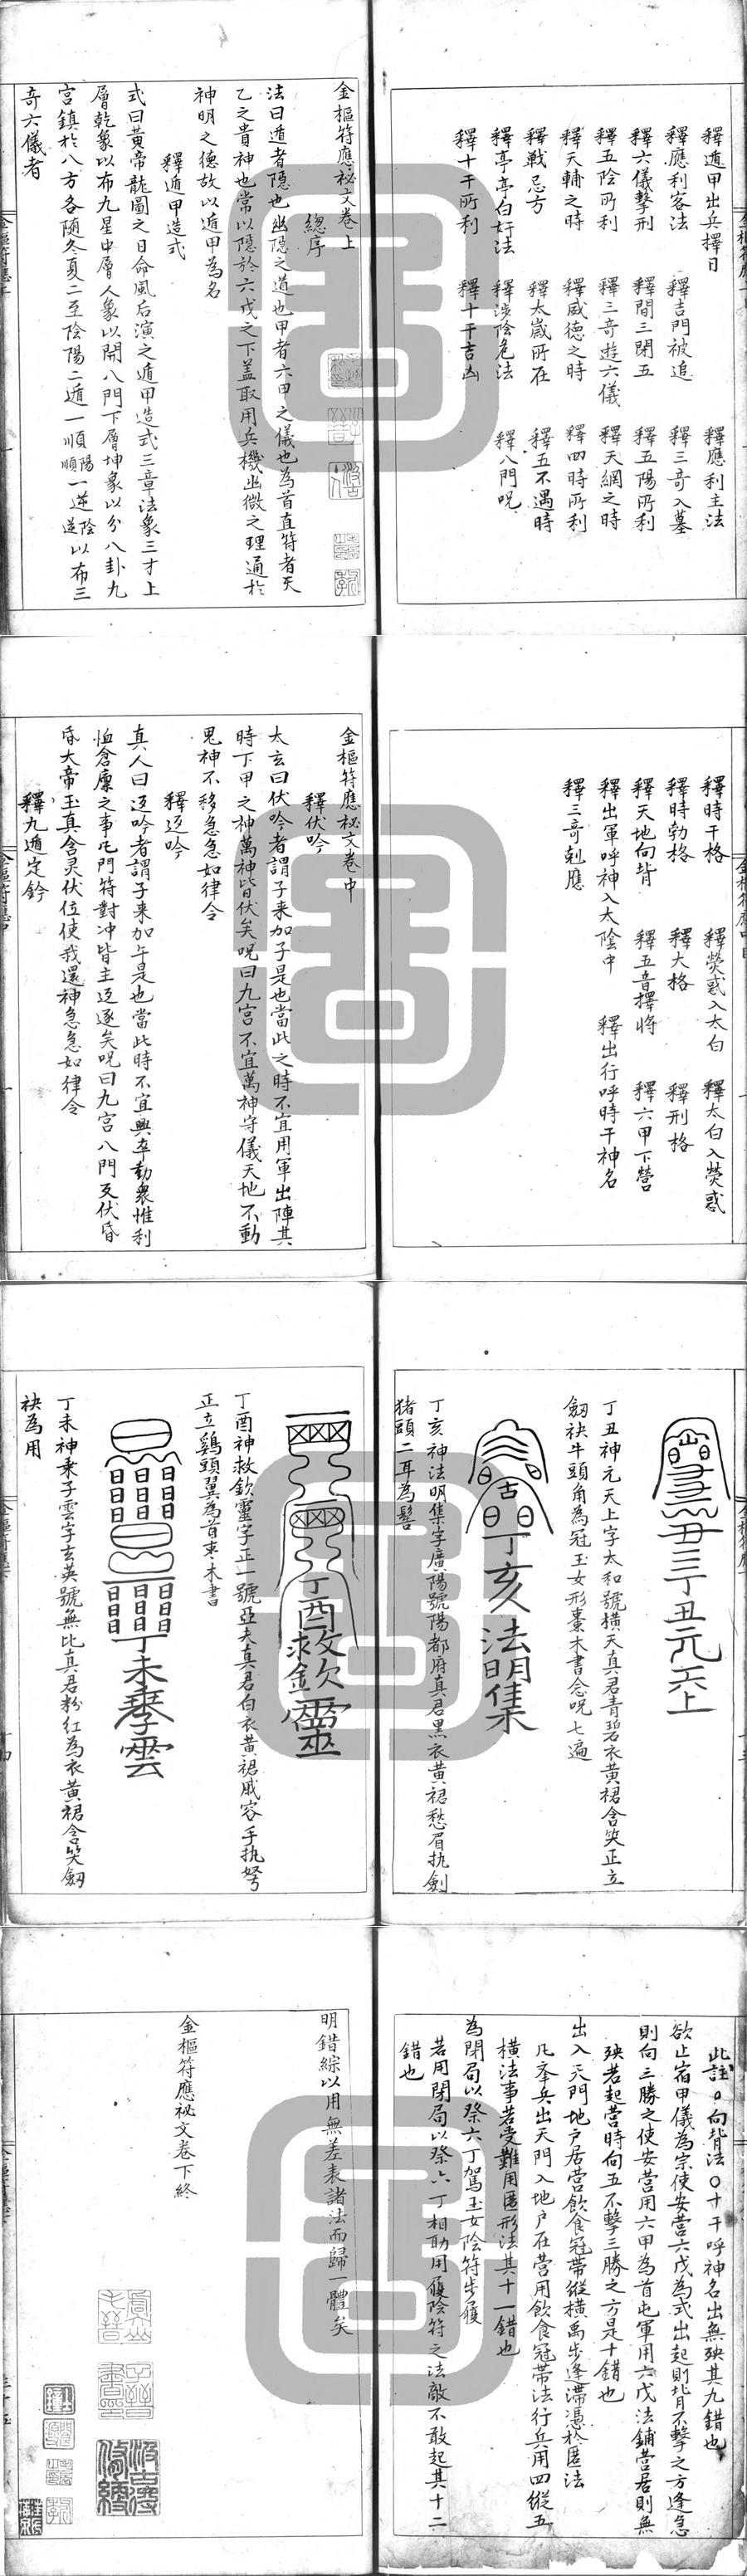 釋遁甲出兵擇日
釋應利客法 釋吉門被追 釋應利主法
釋六儀擊刑 釋間三閉五 釋三奇入墓
釋五陰所利 釋三奇遊六儀 釋五陽所利
釋天輔之時 釋威德之時 釋天網之時
釋戰忌方 釋太歲所在 釋四時所利
釋亭亭白奸法 釋涉陰危法 釋五不遇時
釋十干所利 釋十干吉凶 釋八門呪
金樞符應祕文卷上
總序
法曰遁者隱也幽隱之道也甲者六甲之儀也為首直符者天
乙之貴神也常以隱於六戊之下蓋取用兵機幽微之理通於
神明之德故以遁甲為名
釋遁甲造式
式曰黃帝龍圖之日命風后演之遁甲造式三章法象三才上
層乾象以布九星中層人象以開八門下層坤象以分八卦九
宮鎮於八方各随冬夏二至陰陽二遁一順陽順一逆陰逆以布三
奇六儀者
釋時干格 釋熒惑入太白 釋太白入熒惑
釋時勃格 釋大格 釋刑格
釋天地向背 釋五音擇將 釋六甲下營
釋出軍呼神入太陰中 釋出行呼時干神名
釋三奇剋應
金樞符應祕文卷中
釋伏吟
太玄曰伏吟者謂子来加子是也當此之時不宜用軍出陣其
時下甲之神萬神皆伏矣呪曰九宮不宜萬神守儀天地不動
鬼神不移急急如律令
釋返吟
真人曰返吟者謂子来加午是也當此時不宜興卒動衆惟利
恤倉廪之事屯門符對冲皆主返逐矣呪曰九宮八門反伏昏
昏大帝玉真含灵伏位使我還神急急如律令
釋九遁定鈐
丁丑元天上
丁丑神元天上字太和號橫天真君青碧衣黃裙含笑正立
劔袂牛頭角為冠玉女形棗木書念呪七遍
丁亥法明集
丁亥神法明集字廣陽號陽都府真君黑衣黃裙愁眉執劍
猪頭二耳為髻
丁酉救欽靈
丁酉神救欽靈字正一號亞夫真君白衣黃裙戚容手執弩
正立鷄頭翼為首棗木書
丁未孿雲
丁未神乘子雲字玄英號無比真君粉紅為衣黃裙含笑劔
袂為用
此註○向背法○十干呼神名出無殃其九錯也
欲止宿甲儀為宗使安營六戊為式出起則背不擊之方逢急
則向三勝之使安營用六甲為首屯軍用六戊法鋪營居則無
殃若起營時向五不擊三勝之方是十錯也
出入天門地户居營飲食冠帶縱橫禹步逢滯憑於匿法
凡夲兵出天門入地户在營用飲食冠帶法行兵用四縱五
橫法事若受難用匿形法其十一錯也
為閉局以祭六丁駕玉女陰符步履
若用閉局以祭六丁相助用履陰符之法敵不敢起其十二
錯也
明錯綜以用無差表諸法而歸一體矣
金樞符應祕文卷下終